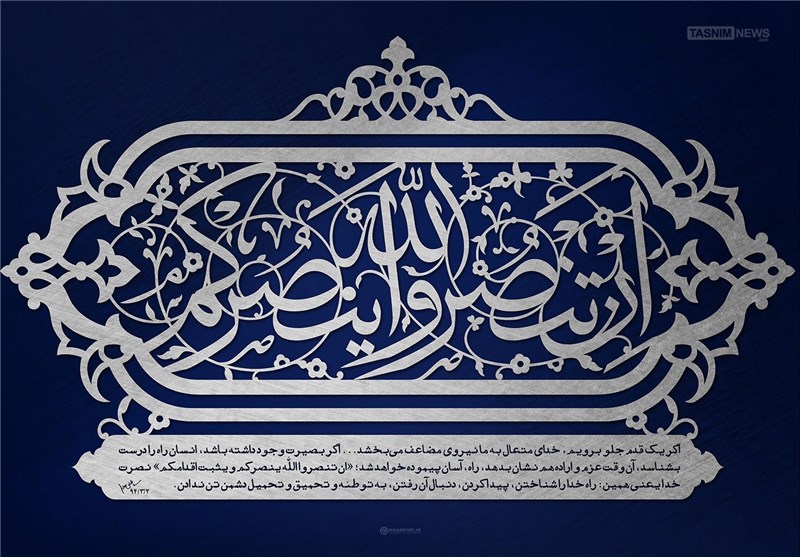 TASNIM NEWS
.com
ان تنصروا الله ینصرکم
اگر یک قدم جلو برویم، خدای متعال به ما نیروی مضاعف می‌بخشد... اگر بصیرت وجود داشته باشد، انسان راه را درست
بشناسد، آن وقت عزم و اراده هم نشان بدهد، راه، آسان پیموده خواهد شد؛ «ان تنصروا الله ینصرکم و یثبت اقدامکم» نصرت
خدا یعنی همین: راه خدا را شناختن، پیدا کردن، دنبال آن رفتن، به توطئه و تحمیق و تحمیل دشمن تن ندادن.
۹۴/۳/۲